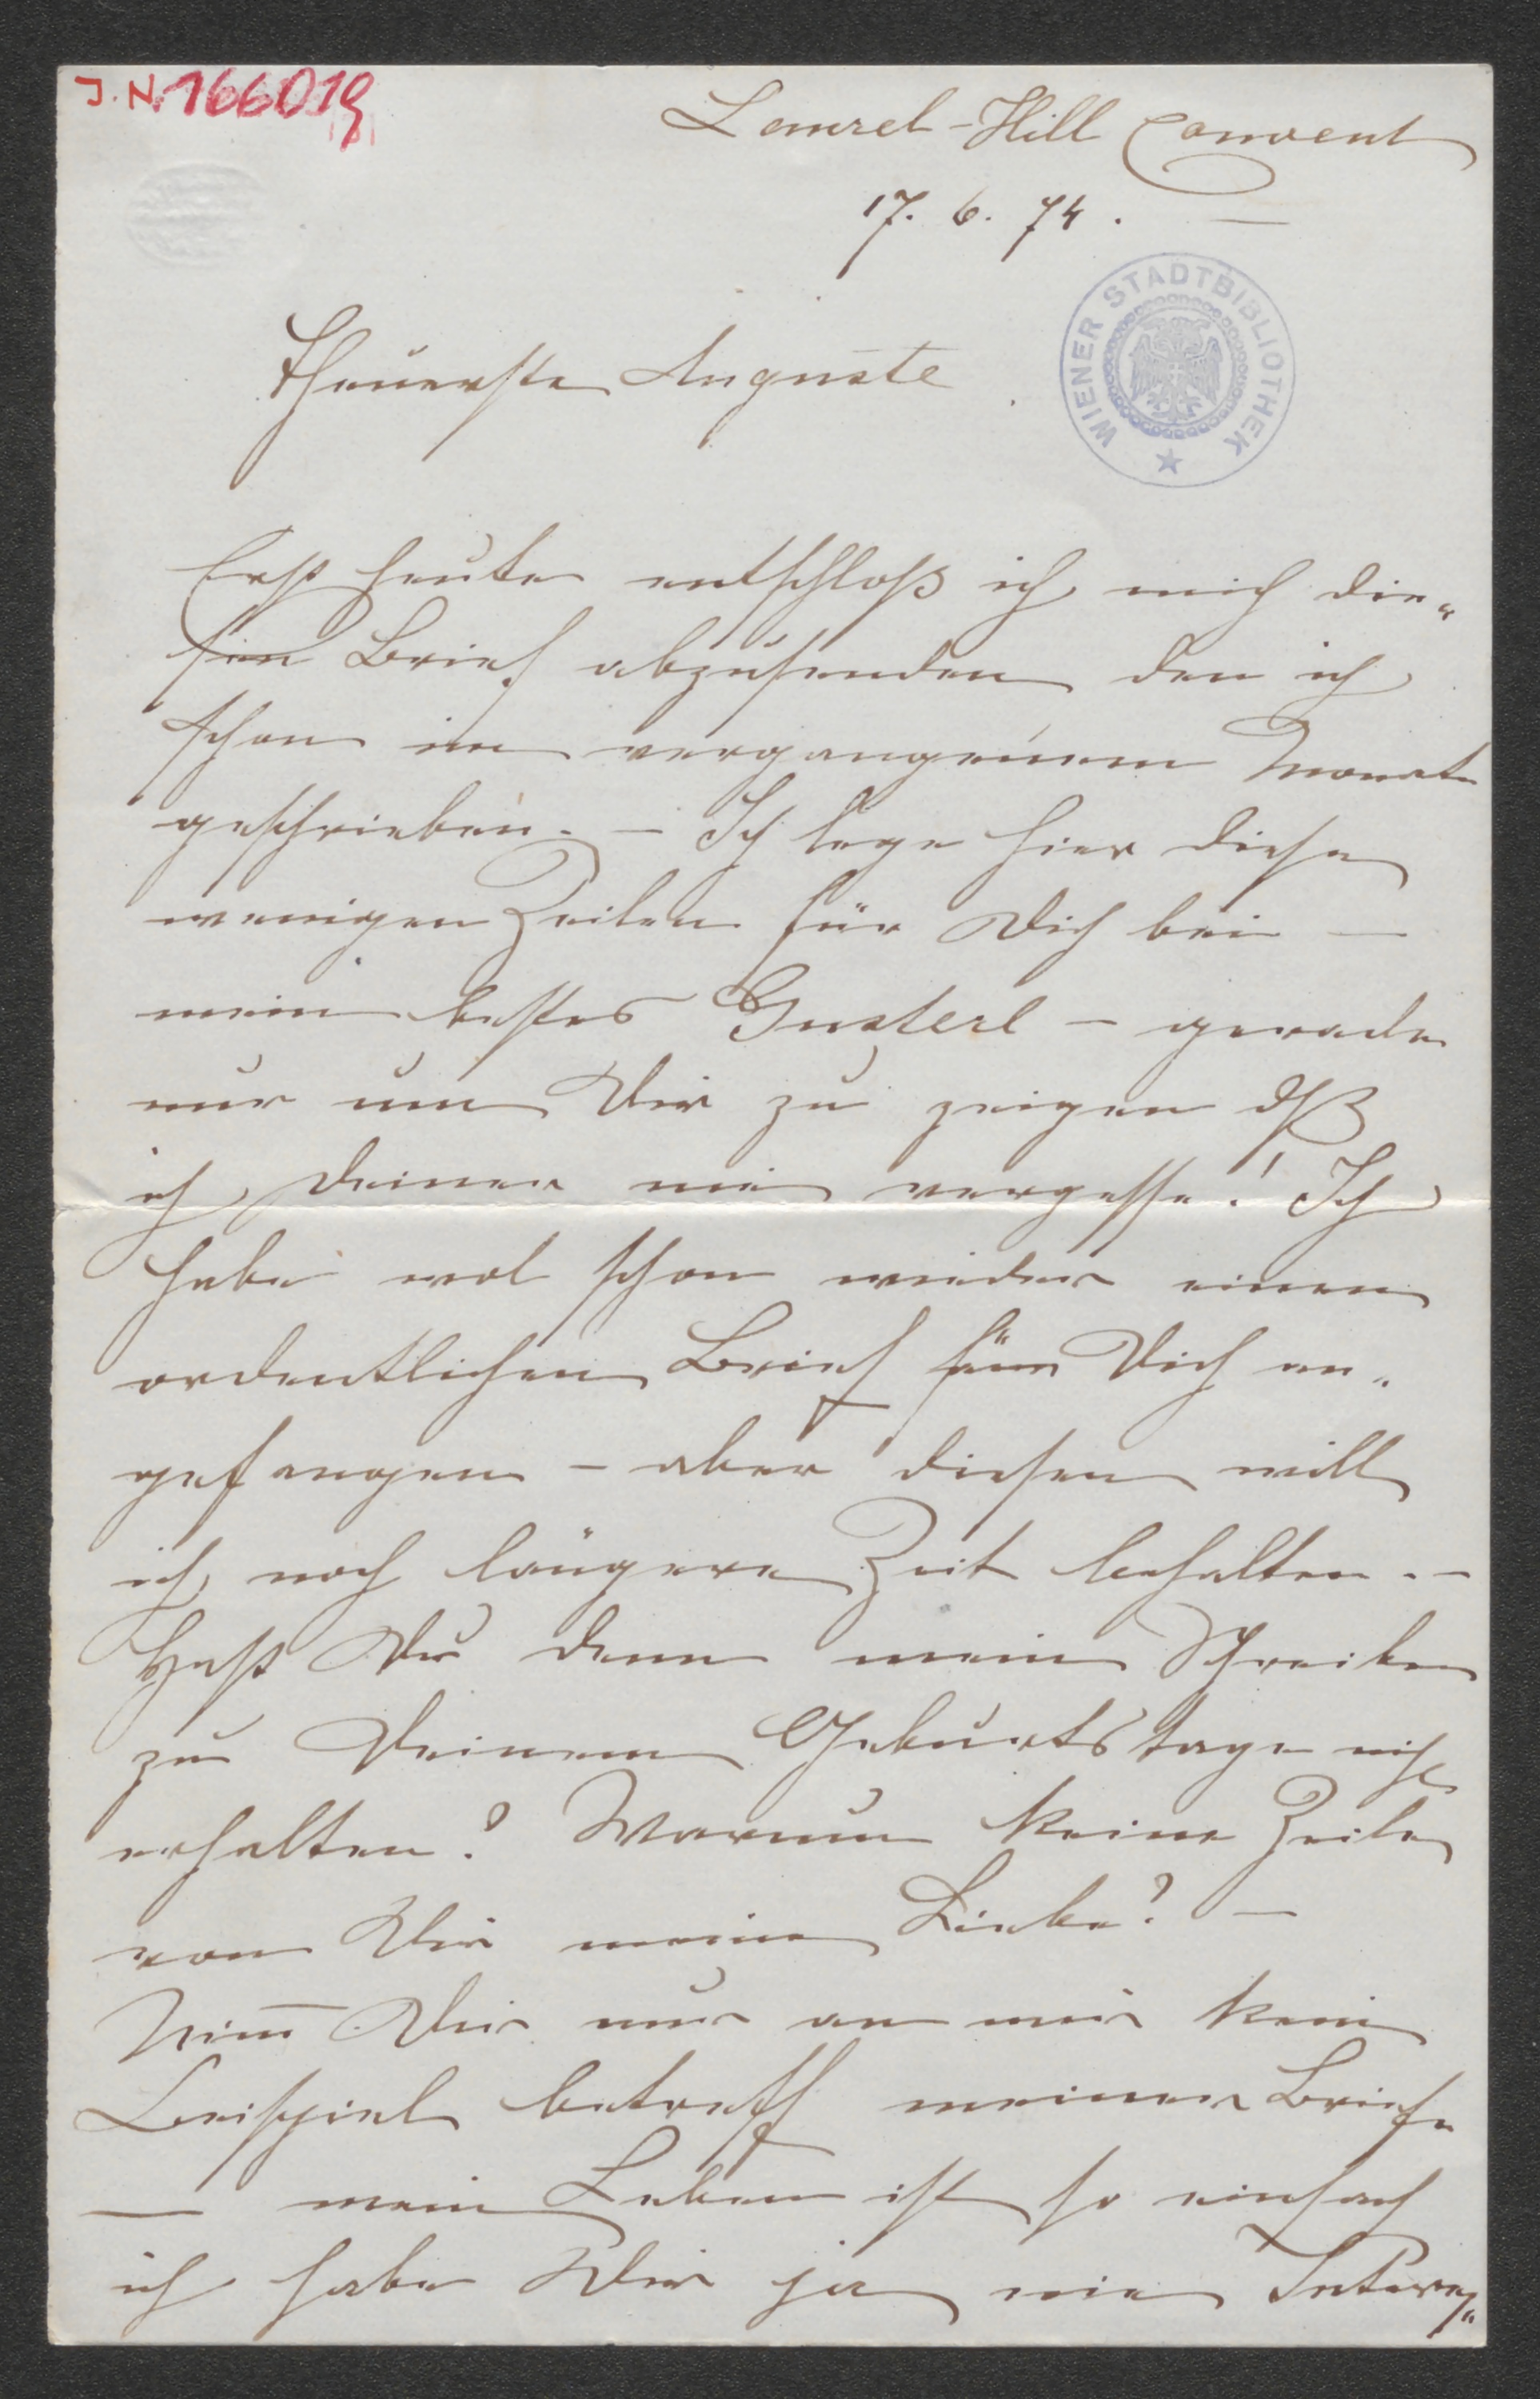 J.N. 166019
Laurel-Hill Convent
17. 6. 74.
WIENER STADTBIBLIOTHEK
Theuerste Auguste
Erst heute entschloß ich mich die„
sen Brief abzusenden den ich
schon im vergangenem Monat
geschrieben. – Ich lege hier diese
wenigen Zeilen für Dich bei –
mein bestes Gusterl – gerade
nur um Dir zu zeigen dß
ich Deiner nie vergesse! Ich
habe wol schon wieder einen
ordentlichen Brief für Dich an„
gefangen – aber diesen will
ich noch längere Zeit behalten. –
Hast Du denn mein Schreiben
zu Deinem Geburtstage nicht
erhalten? Warum keine Zeile
von Dir meine Liebe? –
Nim̅ Dir nur an mir kein
Beispiel betreff meiner Briefe
– mein Leben ist so einfach
ich habe Dir ja nie Interes„